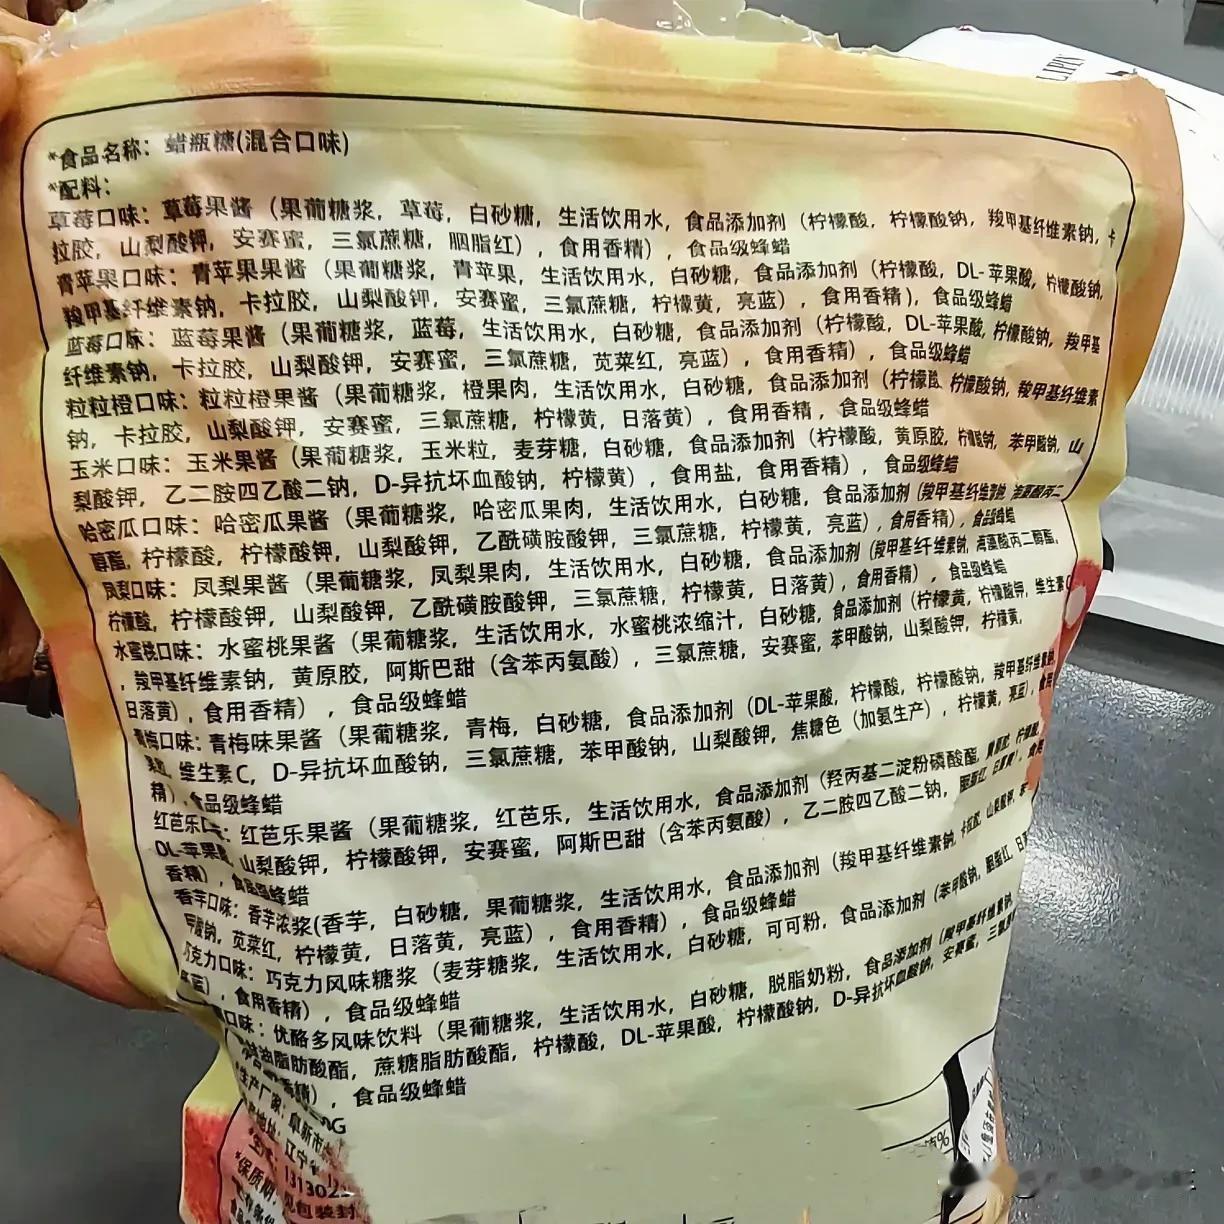 *食品名称：蜡瓶糖(混合口味)
*配料：
草莓口味：草莓果酱（果葡糖浆，草莓，白砂糖，生活饮用水，食品添加剂（柠檬酸，柠檬酸钠，羧甲基纤维素钠，卡
拉胶，山梨酸钾，安赛蜜，三氯蔗糖，胭脂红），食用香精），食品级蜂蜡
青苹果口味：青苹果果酱（果葡糖浆，青苹果，生活饮用水，白砂糖，食品添加剂（柠檬酸，DL-苹果酸，柠檬酸钠，
羧甲基纤维素钠，卡拉胶，山梨酸钾，安赛蜜，三氯蔗糖，柠檬黄，亮蓝），食用香精），食品级蜂蜡
蓝莓口味：蓝莓果酱（果葡糖浆，蓝莓，生活饮用水，白砂糖，食品添加剂（柠檬酸，DL-苹果酸，柠檬酸钠，羧甲基
纤维素钠，卡拉胶，山梨酸钾，安赛蜜，三氯蔗糖，苋菜红，亮蓝），食用香精），食品级蜂蜡
粒粒橙口味：粒粒橙果酱（果葡糖浆，橙果肉，生活饮用水，白砂糖，食品添加剂（柠檬酸，柠檬酸钠，羧甲基纤维素
钠，卡拉胶，山梨酸钾，安赛蜜，三氯蔗糖，柠檬黄，日落黄），食用香精，食品级蜂蜡
玉米口味：玉米果酱（果葡糖浆，玉米粒，麦芽糖，白砂糖，食品添加剂（柠檬酸，黄原胶，柠檬酸钠，苯甲酸钠，山
梨酸钾，乙二胺四乙酸二钠，D-异抗坏血酸钠，柠檬黄），食用盐，食用香精），食品级蜂蜡
哈密瓜口味：哈密瓜果酱（果葡糖浆，哈密瓜果肉，生活饮用水，白砂糖，食品添加剂（羧甲基纤维素钠，海藻酸丙二
醇酯，柠檬酸，柠檬酸钾，山梨酸钾，乙酰磺胺酸钾，三氯蔗糖，柠檬黄，亮蓝），食用香精），食品级蜂蜡
凤梨口味：凤梨果酱（果葡糖浆，凤梨果肉，生活饮用水，白砂糖，食品添加剂（羧甲基纤维素钠，海藻酸丙二醇酯，
柠檬酸，柠檬酸钾，山梨酸钾，乙酰磺胺酸钾，三氯蔗糖，柠檬黄，日落黄），食用香精），食品级蜂蜡
水蜜桃口味：水蜜桃果酱（果葡糖浆，生活饮用水，水蜜桃浓缩汁，白砂糖，食品添加剂（柠檬黄，柠檬酸钾，维生素C
，羧甲基纤维素钠，黄原胶，阿斯巴甜（含苯丙氨酸），三氯蔗糖，安赛蜜，苯甲酸钠，山梨酸钾，柠檬黄，
日落黄），食用香精），食品级蜂蜡
青梅口味：青梅味果酱（果葡糖浆，青梅，白砂糖，食品添加剂（DL-苹果酸，柠檬酸，柠檬酸钠，羧甲基纤维素钠，
维生素C，D-异抗坏血酸钠，三氯蔗糖，苯甲酸钠，山梨酸钾，焦糖色（加氨生产），柠檬黄，亮蓝），食用
精），食品级蜂蜡
红芭乐口味：红芭乐果酱（果葡糖浆，红芭乐，生活饮用水，食品添加剂（羟丙基二淀粉磷酸酯，黄原胶，柠檬酸，
DL-苹果酸，山梨酸钾，柠檬酸钾，安赛蜜，阿斯巴甜（含苯丙氨酸），乙二胺四乙酸二钠，胭脂红，日落黄），食用
香精），食品级蜂蜡
香芋口味：香芋浓浆(香芋，白砂糖，果葡糖浆，生活饮用水，食品添加剂（羧甲基纤维素钠，卡拉胶，山梨酸钾，苯
甲酸钠，苋菜红，柠檬黄，日落黄，亮蓝），食用香精），食品级蜂蜡
巧克力口味：巧克力风味糖浆（麦芽糖浆，生活饮用水，白砂糖，可可粉，食品添加剂（苯甲酸钠，胭脂红，日
亮蓝），食用香精），食品级蜂蜡
口味：优酪多风味饮料（果葡糖浆，生活饮用水，白砂糖，脱脂奶粉，食品添加剂（羧甲基纤维素钠，
甘油脂肪酸酯，蔗糖脂肪酸酯，柠檬酸，DL-苹果酸，柠檬酸钠，D-异抗坏血酸钠，安赛蜜，三氯
香精），食品级蜂蜡
生产厂家：阜新市
地址：辽宁省
131302
*保质期：见包装封
LIPIN